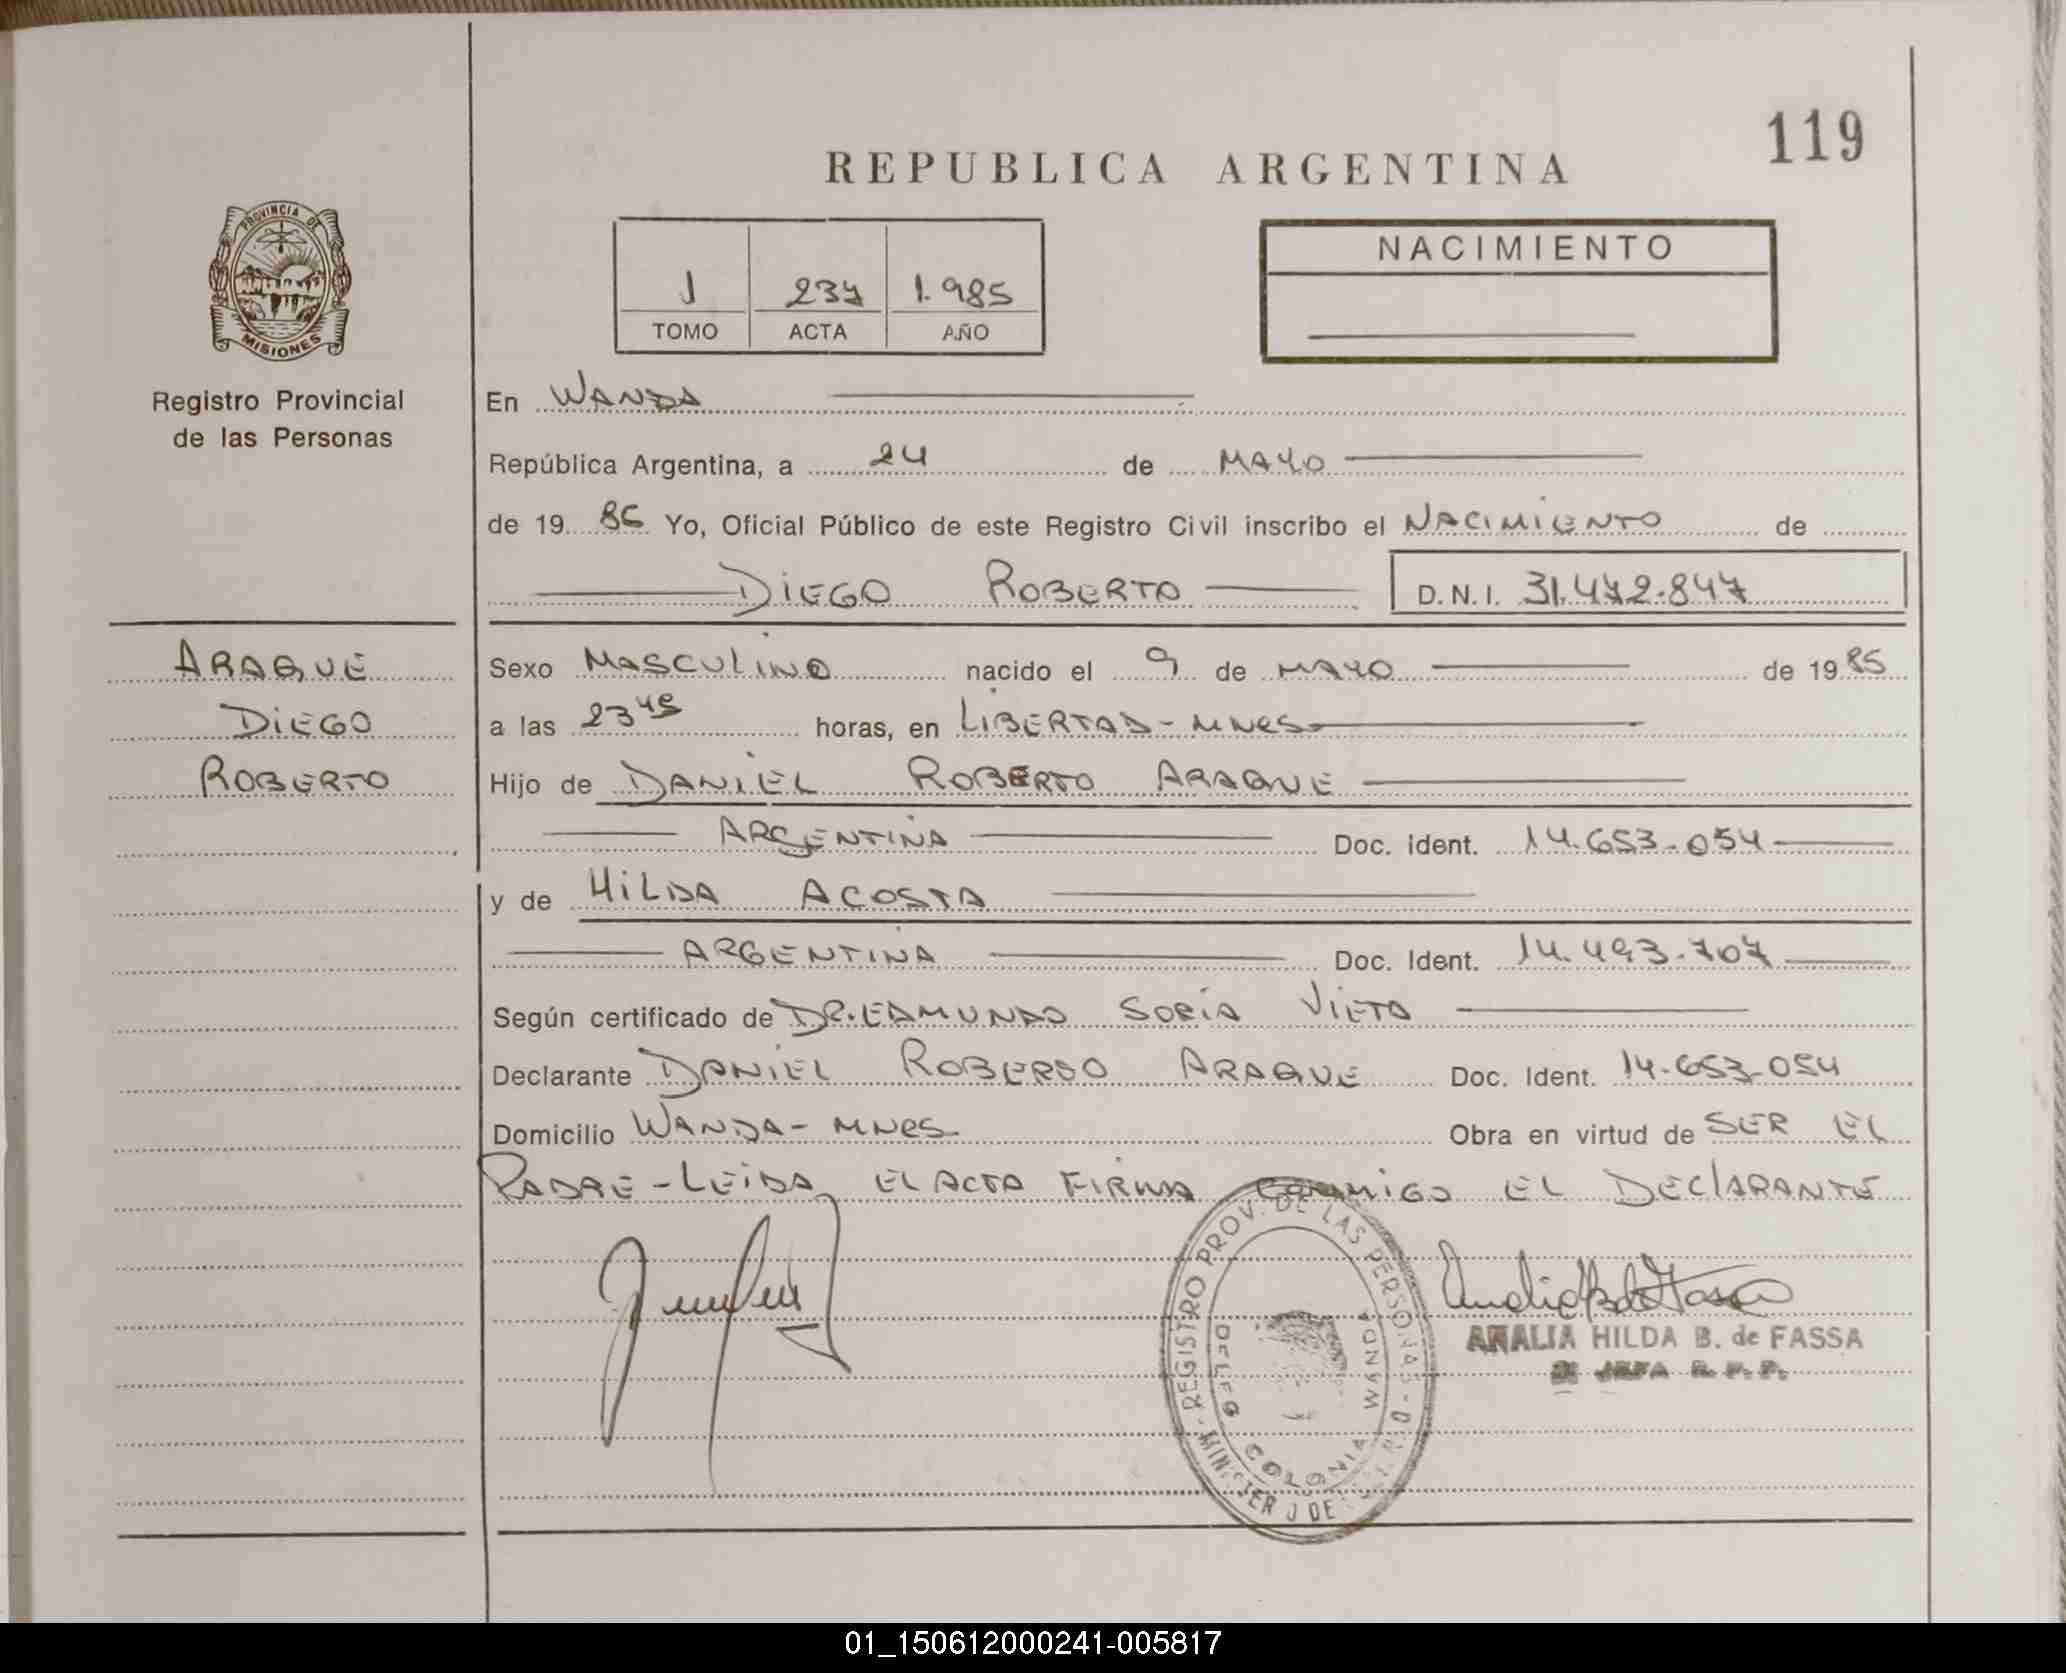 119
REPUBLICA ARGENTINA
PROVINCIA DE
MISIONES
Registro Provincial
de las Personas
J 237 1.985
TOMO ACTA AÑO
NACIMIENTO
En WANDA
República Argentina, a 24 de MAYO
de 19 85 Yo, Oficial Público de este Registro Civil inscribo el NACIMIENTO de
DIEGO ROBERTO D.N.I. 31.472.847
ARAQUE
DIEGO
ROBERTO
Sexo MASCULINO nacido el 9 de MAYO de 19 85
a las 23 45 horas, en LIBERTAD - MNES
Hijo de DANIEL ROBERTO ARAQUE
ARGENTINA Doc. ident. 14.653.054
y de HILDA ACOSTA
ARGENTINA Doc. Ident. 14.493.707
Según certificado de DR. EDMUNDO SORIA VIETO
Declarante DANIEL ROBERTO ARAQUE Doc. Ident. 14.653.054
Domicilio WANDA - MNES Obra en virtud de SER EL
PADRE - LEIDA EL ACTA FIRMA CONMIGO EL DECLARANTE
REGISTRO PROV. DE LAS PERSONAS
COLONIA WANDA
ANALIA HILDA B. de FASSA
JEFA R. P. P.
01_150612000241-005817